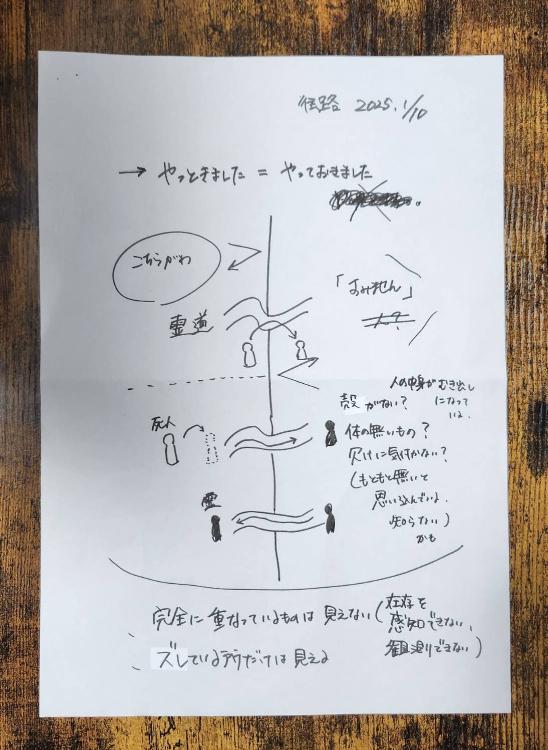 経路 2025. 1/10
→ やっときました = やっておきました
こちらがわ
「すみません」
霊道
人の中身がむき出し
になって
いる.
殻がない?
死人
体の無いもの?
欠けに気付かない?
(もともと無いと
思い込んでいる.
知らない)
かも
霊
完全に重なっているものは見えない(在存を
感知できない、
観測できない)
ズレている所だけは見える